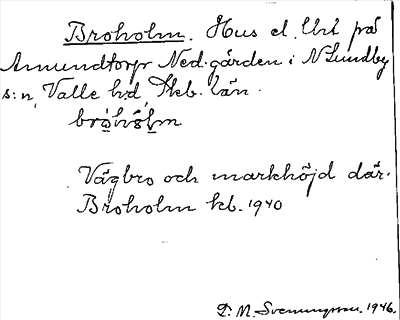 Broholm. Hus el. lht på
Amundtorp Ned.gården i N Lundby
s:n, Valle h:d, Skb. län.
brohólm
Vägbro och markhöjd där.
Broholm kb. 1940
D. M. Svenungsson. 1946.